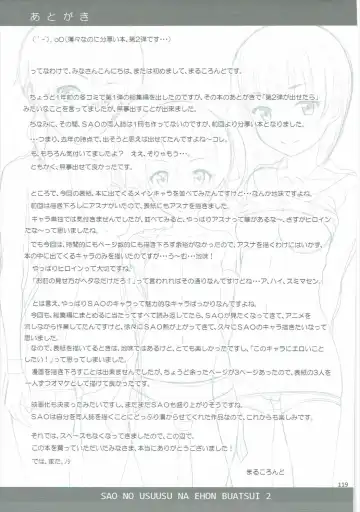 あとがき
(´-)。oO(薄々なのに分厚い本、第2弾です・・・)
ってなわけで、みなさんこんにちは、または初めまして、まるころんどです。
ちょうど1年前の冬コミで第1弾の総集編を出したのですが、その本のあとがきで「第2弾が出せたら」
みたいなことを言ってましたが、無事出すことが出来ました。
ちなみに、その間、SAOの同人誌は1冊も作ってないのですが、前回より分厚い本となりました。
・・・つまり、去年の時点で、出そうと思えば出せてたんですよね～コレ。
も、もちろん気付いてましたよ？　ええ、そりゃもう・・・。
ともかく、無事出せて良かったです。
ところで、今回の表紙、本に出てくるメインキャラを並べてみたんですけど・・・なんか地味ですよね。
前回は描き下ろしにアスナがいたので、表紙にもアスナを描きました。
キャラ単位では気付きませんでしたが、並べてみると、やっぱりアスナって華があるな～、さすがヒロイン
だな～って思いました。
でも今回は、時間的にもページ数的にも描き下ろす余裕がなかったので、アスナを描くわけにはいかず、
本の中に出てくるキャラのみを描いたのですが・・・う～む・・・地味！
やっぱりヒロインって大切ですね。
「お前の見せ方がヘタなだけだろ！」って言われればその通りなんですけどね・・・ア、ハイ、スミマセン。
とは言え、やっぱりSAOのキャラって魅力的なキャラばっかりなんですよね。
今回も、総集編にまとめるに当たって、すべて読み返してたら、SAOが見たくなってきて、アニメを
流しながら作業してたんですけど、徐々にSAO熱が上がってきて、久々にSAOのキャラ描きたいなって
思いました。
なので、表紙を描いてるときは、地味ではあるけど、とても楽しかったですし、「このキャラにエロいこと
したい！」って思って楽しい描いました。
漫画を描き下ろすことは出来ませんでしたが、ちょうど余ったページが3ページあったので、表紙の3人を
一人ずつオマケとして描けて良かったです。
映画化も決まったみたいですし、まだまだSAOも盛り上がりそうですね。
SAOは自分を同人誌を描くことにどっぷり漬からせてくれた作品なので、これからも楽しみです。
それでは、スペースもなくなってきましたので、この辺で。
この本を買っていただいたみなさま、本当にありがとうございました！
では、また。ﾉｼ
まるころんど
119
SAO NO USUUSU NA EHON BUATSUI 2